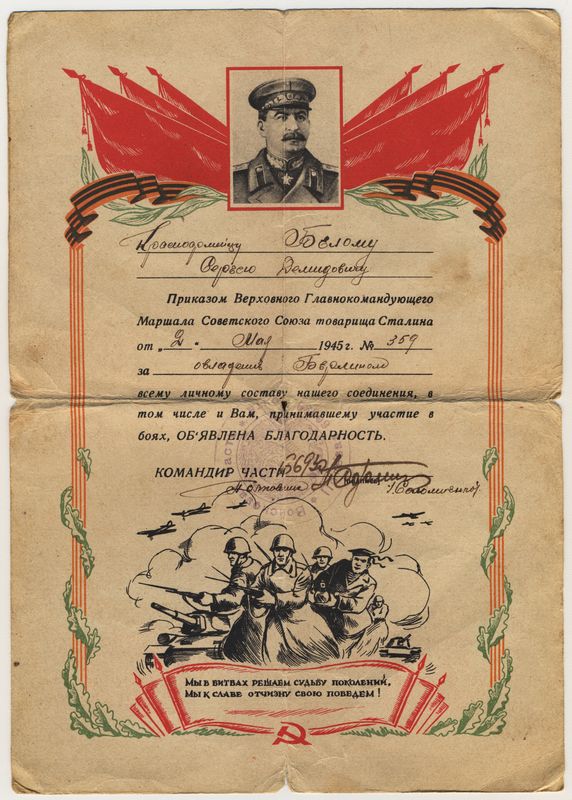 Краснофлотцу Белому
Сергею Демидовичу
Приказом Верховного Главнокомандующего
Маршала Советского Союза товарища Сталина
от „2“ Мая 1945 г. № 359
за овладение Берлином
всему личному составу нашего соединения, в
том числе и Вам, принимавшему участие в
боях, ОБ'ЯВЛЕНА БЛАГОДАРНОСТЬ.
КОМАНДИР ЧАСТИ
МЫ В БИТВАХ РЕШАЕМ СУДЬБУ ПОКОЛЕНИЙ,
МЫ К СЛАВЕ ОТЧИЗНУ СВОЮ ПОВЕДЕМ!